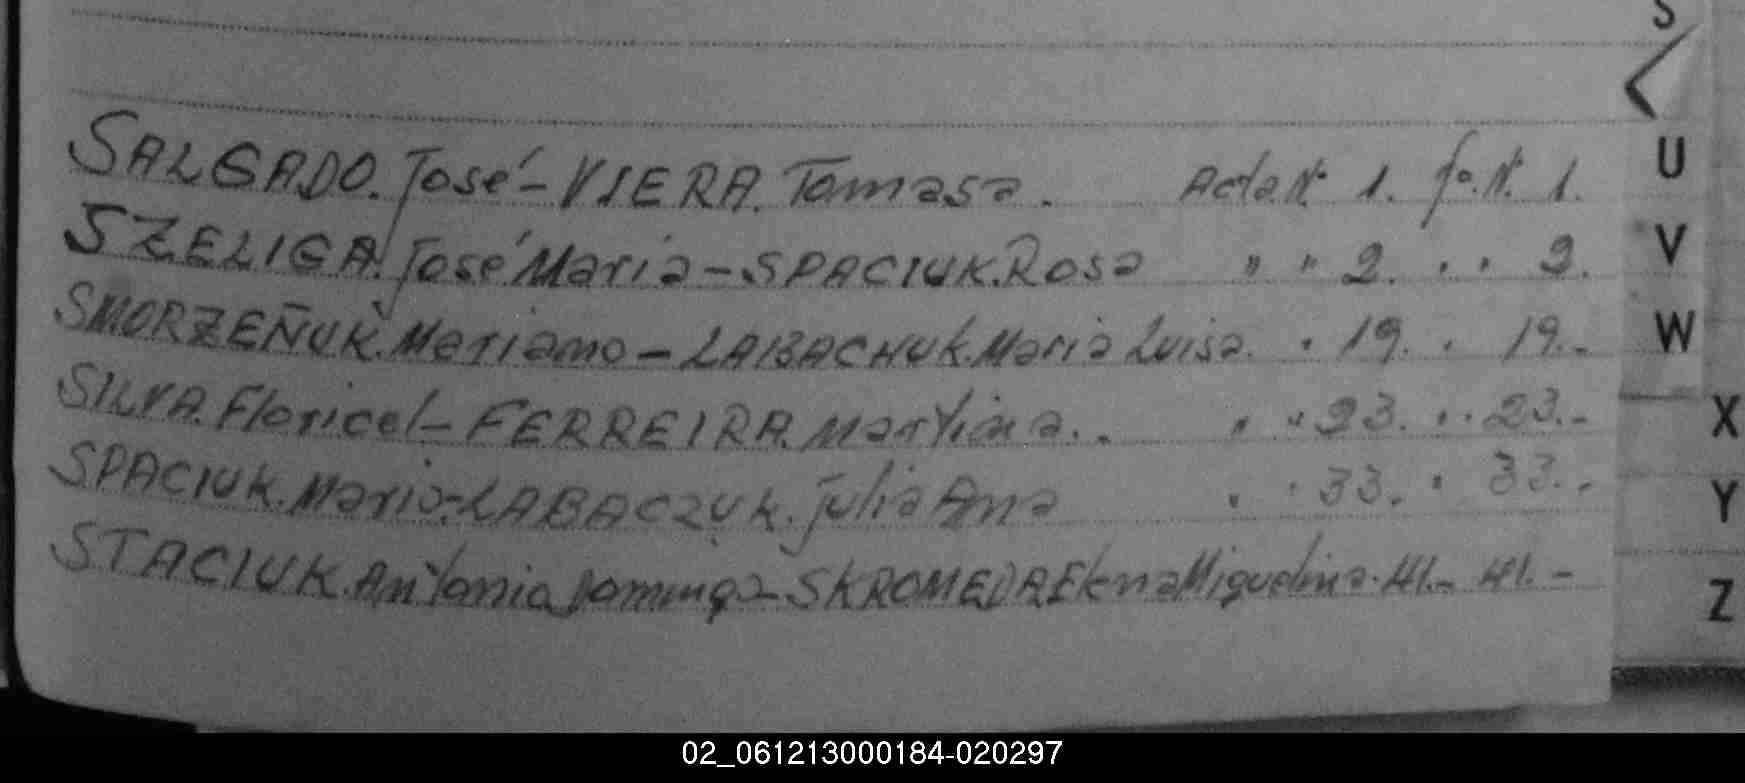 S
SALGADO. José - VIERA. Tomasa. Acta Nº 1. fo. Nº 1.
SZELIGA. José Maria - SPACIUK. Rosa " " 2. . . 2.
SMORZEÑUK. Mariano - LABACHUK. Maria Luisa. . 19. . 19.-
SILVA. Floricel - FERREIRA. Martina. . . " 23. . . 23.-
SPACIUK. Mario - LABACZUK. Julia Ana . . 33. . 33.-
STACIUK. Antonia Dominga - SKROMEDA Elena Miguelina. 41.- 41.-
U
V
W
X
Y
Z
02_061213000184-020297